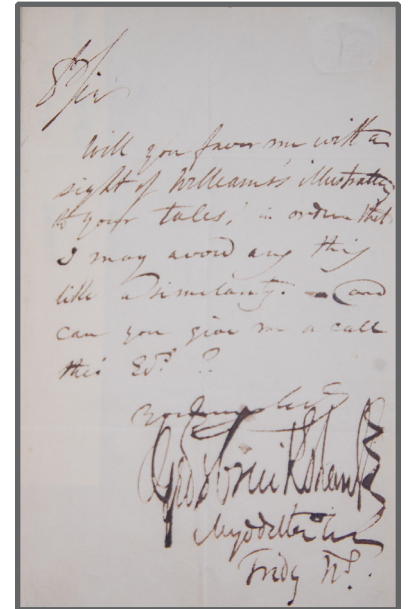 Dr Sir
Will you favor me with a
sight of Williams's illustrations
to your tales, in order that
I may avoid any thing
like a similarity. – and
can you give me a call
this Evg. ?
Yours truly
Geo Cruikshank
Myddelton
Fridy